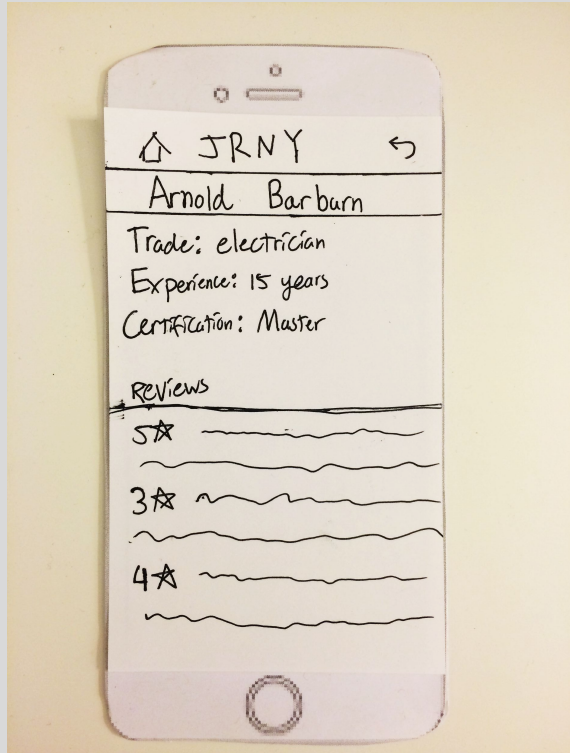 JRNY
Arnold Barbarn
Trade: electrician
Experience: 15 years
Certification: Master
Reviews
5☆
3☆
4☆